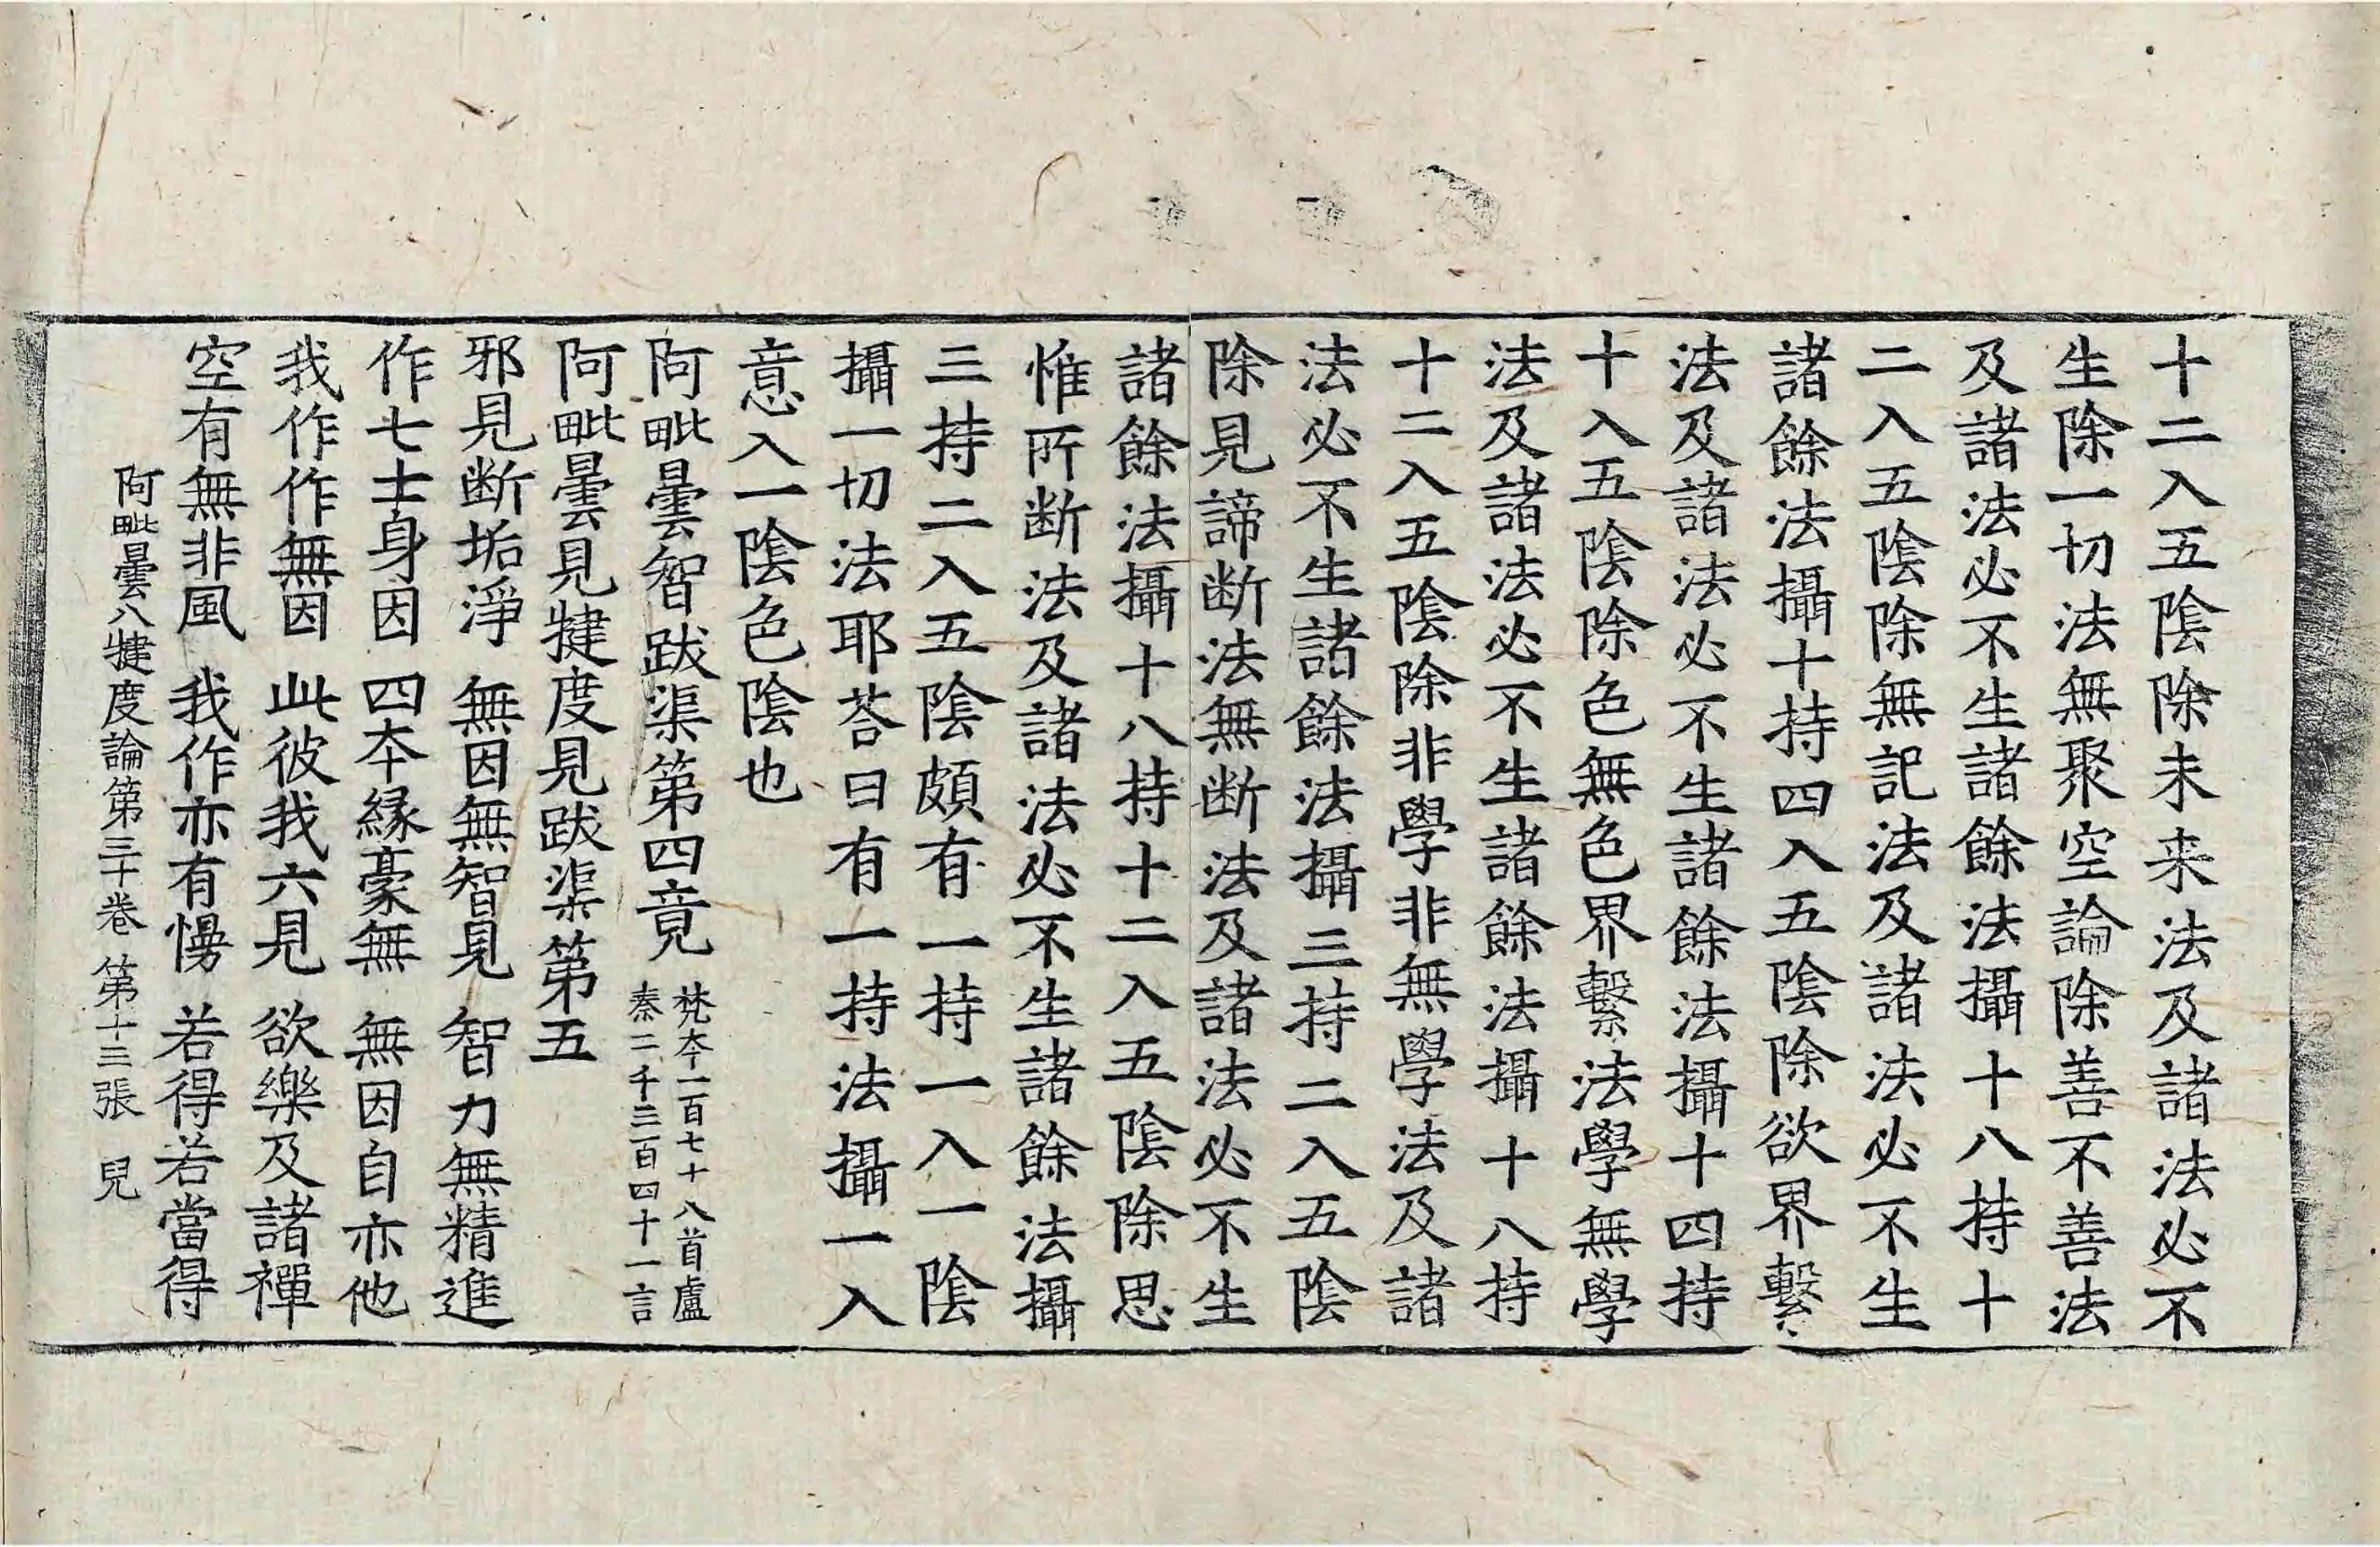 十二入五陰除未来法及諸法必不
生除一切法無聚空論除善不善法
及諸法必不生諸餘法攝十八持十
二入五陰除無記法及諸法必不生
諸餘法攝十持四入五陰除欲界繫
法及諸法必不生諸餘法攝十四持
十入五陰除色無色界繫法學無學
法及諸法必不生諸餘法攝十八持
十二入五陰除非學非無學法及諸
法必不生諸餘法攝三持二入五陰
除見諦断法無断法及諸法必不生
諸餘法攝十八持十二入五陰除思
惟所断法及諸法必不生諸餘法攝
三持二入五陰頗有一持一入一陰
攝一切法耶荅曰有一持法攝一入
意入一陰色陰也
阿毗曇智跋渠第四竟 梵夲一百七十八首盧
秦二千三百四十一言
阿毗曇見犍度見跋渠第五
邪見断垢淨 無因無智見 智力無精進
作七士身因 四夲緣豪無 無因自亦他
我作作無因 此彼我六見 欲樂及諸禪
空有無非風 我作亦有慢 若得若當得
阿毗曇八犍度論第三十卷 第十三張 兒